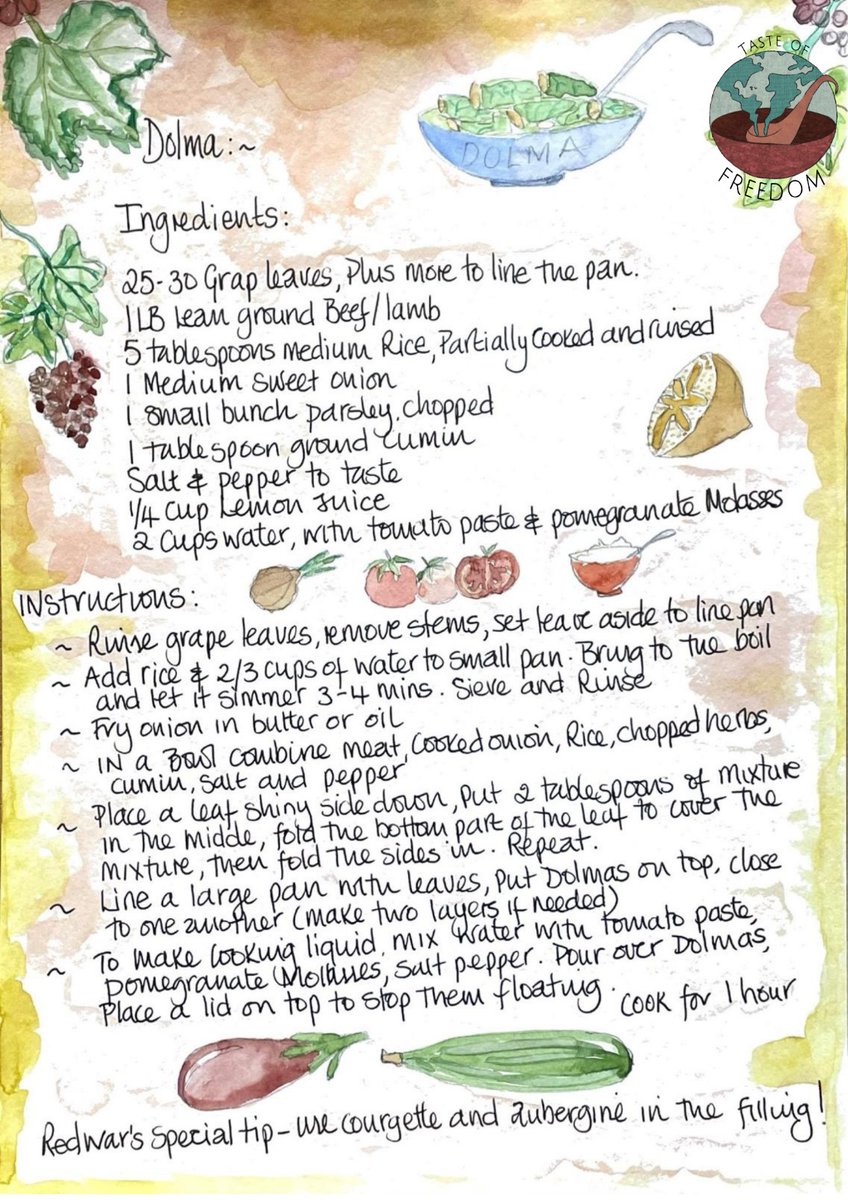 TASTE OF
FREEDOM
DOLMA
Dolma:~
Ingredients:
25-30 Grap leaves, Plus more to line the pan.
1LB Lean ground Beef/lamb
5 tablespoons medium Rice, Partially Cooked and rinsed
1 Medium sweet onion
1 small bunch parsley, chopped
1 tablespoon ground cumin
Salt & pepper to taste
1/4 cup Lemon Juice
2 cups water, with tomato paste & pomegranate Molasses
INstructions:
~ Rinse grape leaves, remove stems, set leave aside to line pan
~ Add rice & 2/3 cups of water to small pan. Bring to the boil
and let it simmer 3-4 mins. Sieve and Rinse
~ Fry onion in butter or oil
~ IN a Bowl combine meat, Cooked onion, Rice, chopped herbs,
cumin, salt and pepper
~ Place a leaf shiny side down, Put 2 tablespoons of mixture
in the middle, fold the bottom part of the leaf to cover the
mixture, then fold the sides in. Repeat.
~ Line a large pan with leaves, Put Dolmas on top, close
to one another (make two layers if needed)
~ To make Cooking liquid, mix water with tomato paste,
pomegranate Mollasses, salt pepper. Pour over Dolmas,
Place a lid on top to stop them floating. Cook for 1 hour
Redwar's special tip - use courgette and aubergine in the filling!